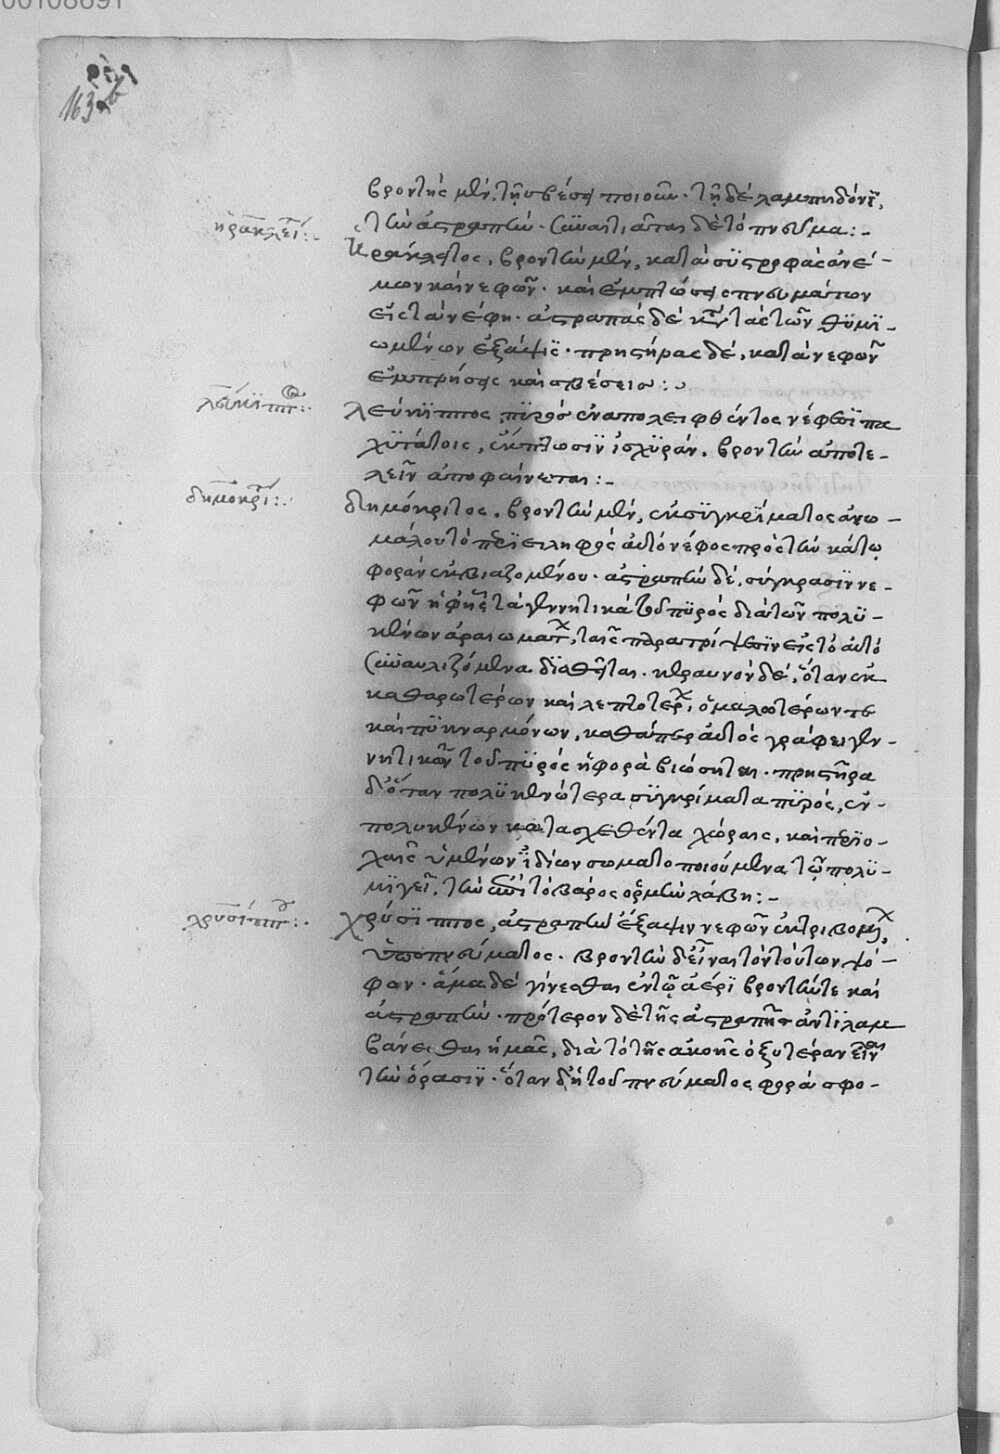 00108691
163 b
βροντῆς μὲν, τῇ σβέσει ποιοῦν · τῇ δὲ λαμπηδόνϊ,
τὴν ἀστραπήν · συναιτιᾶται δὲ τὸ πνεῦμα :-
ἡρακλεί :-
Ἡράκλειτος, βροντὴν μὲν, κατὰ συστροφὰς ἀνέ-
μων καὶ νεφῶν · καὶ ἐμπτώσεις πνευμάτων
εἰς τὰ νέφη · ἀστραπὰς δὲ κατὰ τὰς τῶν θυμϊ-
ωμένων ἐξάψεις · πρηστῆρας δὲ, κατὰ νεφῶν
ἐμπρήσεις καὶ σβέσεις :-
λεύκιππ :-
λεύκιππος, πυρὸς ἐναπολειφθέντος νέφεσϊ πα
χυτάτοις, ἔκπτωσϊν ἰσχϋράν, βροντὴν ἀποτε-
λεῖν ἀποφαίνεται :-
δημοκρι :-
δημόκριτος, βροντὴν μὲν, ἐκ συγκρίματος ἀνω-
μάλου τὸ περϊειληφὸς αὐτὸ νέφος πρὸς τὴν κάτω
φορὰν ἐκβιαζομένου · ἀστραπὴν δὲ, σύγκρασϊν νε-
φῶν ἡφ' ἧς τὰ γεννητικὰ τοῦ πϋρὸς διὰ τῶν πολϋ-
κένων ἀραιωμάτ, ταῖς παρατρίψεσϊν εἰς τὸ αὐτὸ
συναυλιζόμενα δϊηθεῖται · κεραυνὸν δὲ, ὅταν ἐκ
καθαρωτέρων καὶ λεπτοτέρ, ὁμαλωτέρων τε
καὶ πϋκναρμόνων, καθάπερ αὐτὸς γράφει γεν-
νητικῶν τοῦ πϋρὸς ἡ φορὰ βιώσηται · πρηστῆρα
δ' ὅταν πολϋκενώτερα συγκρίματα πϋρὸς, ἐν
πολυκένων κατασχεθέντα χώραις, καὶ περϊο-
χαῖς ὑμένων ἰδίων σωματοποιούμενα τῷ πολϋ-
μϊγεῖ, τὴν ἐπὶ τὸ βάρος ὁρμὴν λάβη :-
χρύσιππ :-
χρύσϊππος, ἀστραπὴν ἔξαψιν νεφῶν ἐκτριβομ,
ὑπὸ πνεύματος · βροντὴν δ' εἶναι τὸν τούτων ψό-
φον · ἅμα δὲ γίνεσθαι ἐν τῷ ἀέρϊ βροντήν τε καὶ
ἀστραπήν · πρότερον δὲ τῆς ἀστραπῆς ἀντϊλαμ
βάνεσθαι ἡμᾶς, διὰ τὸ τῆς ἀκοῆς ὀξυτέραν εἶναι
τὴν ὅρασϊν · ὅταν δ' ἡ τοῦ πνεύματος φορὰ σφο-